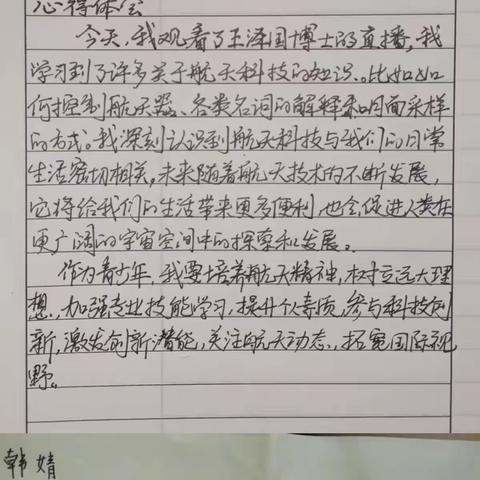 心得体会
今天,我观看了王泽国博士的直播,我
学习到了许多关于航天科技的知识。比如如
何控制航天器、各类名词的解释和月面采样
的方式。我深刻认识到航天科技与我们的日常
生活密切相关,未来随着航天技术的不断发展,
它将给我们的生活带来更多便利,也会促进人类在
更广阔的宇宙空间中的探索和发展。
作为青少年,我要培养航天精神,树立远大理
想,加强专业技能学习,提升个人素质,参与科技创
新,激发创新潜能,关注航天动态,拓宽国际视
野。
韩婧